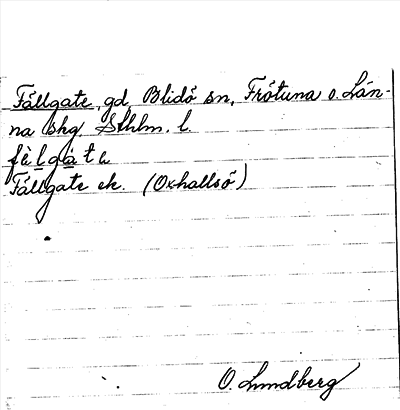 Fällgate, gd, Blidö sn, Frötuna o. Län-
na shg. Sthlm. l.
fèlgàtε
Fällgate ek. (Oxhalsö)
O. Lundberg